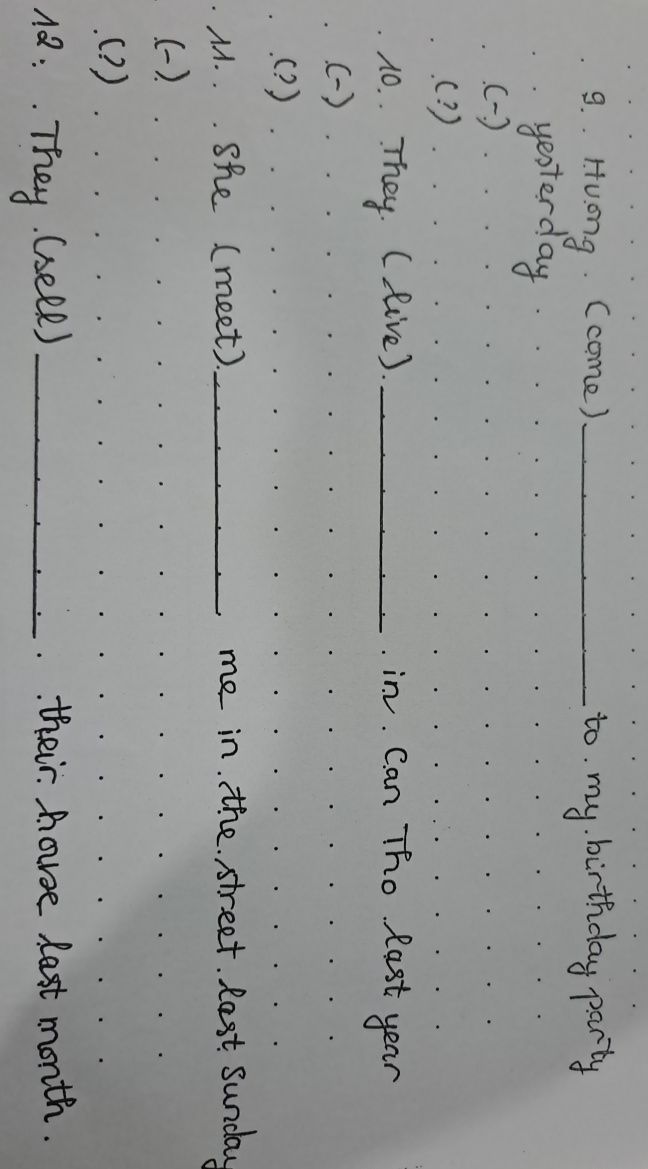 9. Huong (come) ________ to my birthday party
yesterday
(-)
(?)
10. They (live) ________ in Can Tho last year
(-)
(?)
11. She (meet) ________ me in the street last Sunday
(-)
(?)
12. They (sell) ________ their house last month.